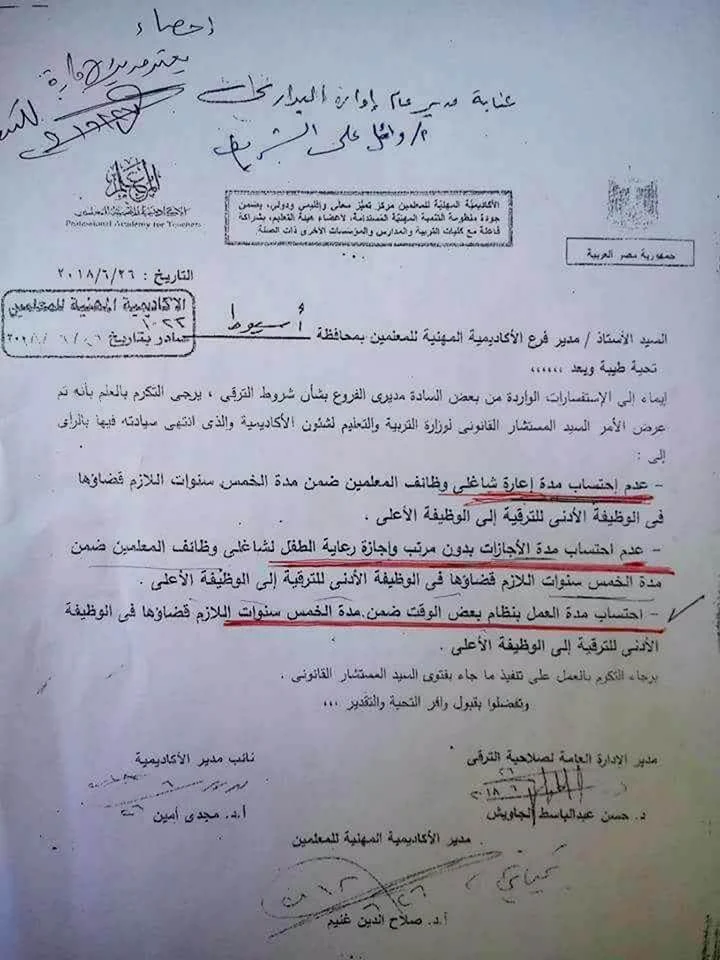 احصاء
يعتمد مدير الإدارة
عناية مدير عام إدارة البدارى
أ/ وائل على الشريف
الأكاديمية المهنية للمعلمين
Professional Academy for Teachers
الأكاديميّة المهنيّة للمعلمين مركز تميّز محلى وإقليمي ودولي، يضمن
جودة منظومة التنمية المهنيّة المُستدامة، لأعضاء هيئة التعليم، بشراكة
فاعلة مع كليات التربية والمدارس والمؤسسات الأخرى ذات الصلة.
جمهورية مصر العربية
التاريخ : ٢٠١٨/٦/٢٦
الاكاديمية المهنية للمعلمين
١٠٢٢
صادر بتاريخ
السيد الأستاذ / مدير فرع الأكاديمية المهنية للمعلمين بمحافظة أسيوط
تحية طيبة وبعد ،،،،،،
إيماء إلي الإستفسارات الواردة من بعض السادة مديرى الفروع بشأن شروط الترقي ، يرجى التكرم بالعلم بأنه تم
عرض الأمر السيد المستشار القانونى لوزارة التربية والتعليم لشئون الأكاديمية والذى انتهى سيادته فيها بالرأى
إلى :
- عدم إحتساب مدة إعارة شاغلى وظائف المعلمين ضمن مدة الخمس سنوات اللازم قضاؤها
فى الوظيفة الأدنى للترقية إلى الوظيفة الأعلى .
- عدم احتساب مدة الأجازات بدون مرتب وإجازة رعاية الطفل لشاغلى وظائف المعلمين ضمن
مدة الخمس سنوات اللازم قضاؤها فى الوظيفة الأدنى للترقية إلى الوظيفة الأعلى .
- احتساب مدة العمل بنظام بعض الوقت ضمن مدة الخمس سنوات اللازم قضاؤها فى الوظيفة
الأدنى للترقية إلى الوظيفة الأعلى .
برجاء التكرم بالعمل على تنفيذ ما جاء بفتوى السيد المستشار القانونى .
وتفضلوا بقبول وافر التحية والتقدير ،،،
مدير الادارة العامة لصلاحية الترقى
د. حسن عبدالباسط الجاويش
نائب مدير الأكاديمية
أ.د. مجدى أمين
مدير الأكاديمية المهنية للمعلمين
أ.د. صلاح الدين غنيم